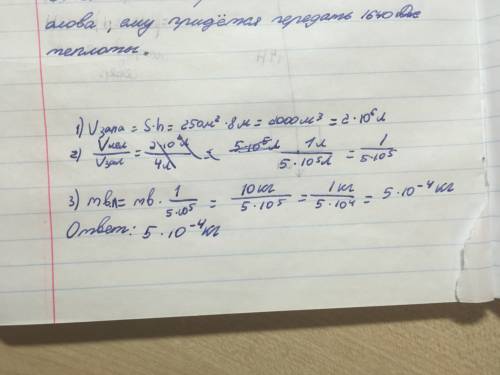 олова, ему придётся передать 1640 Дж
теплоты.
1) Vзала = S·h = 250м² · 8м = 2000м³ = 2·10⁶л
2) Vчел/Vзал = = 1л/5·10⁵л = 1/5·10⁵
3) mвл = mв · 1/5·10⁵ = 10кг/5·10⁵ = 1кг/5·10⁴ = 5·10⁻⁴кг
Ответ: 5·10⁻⁴кг